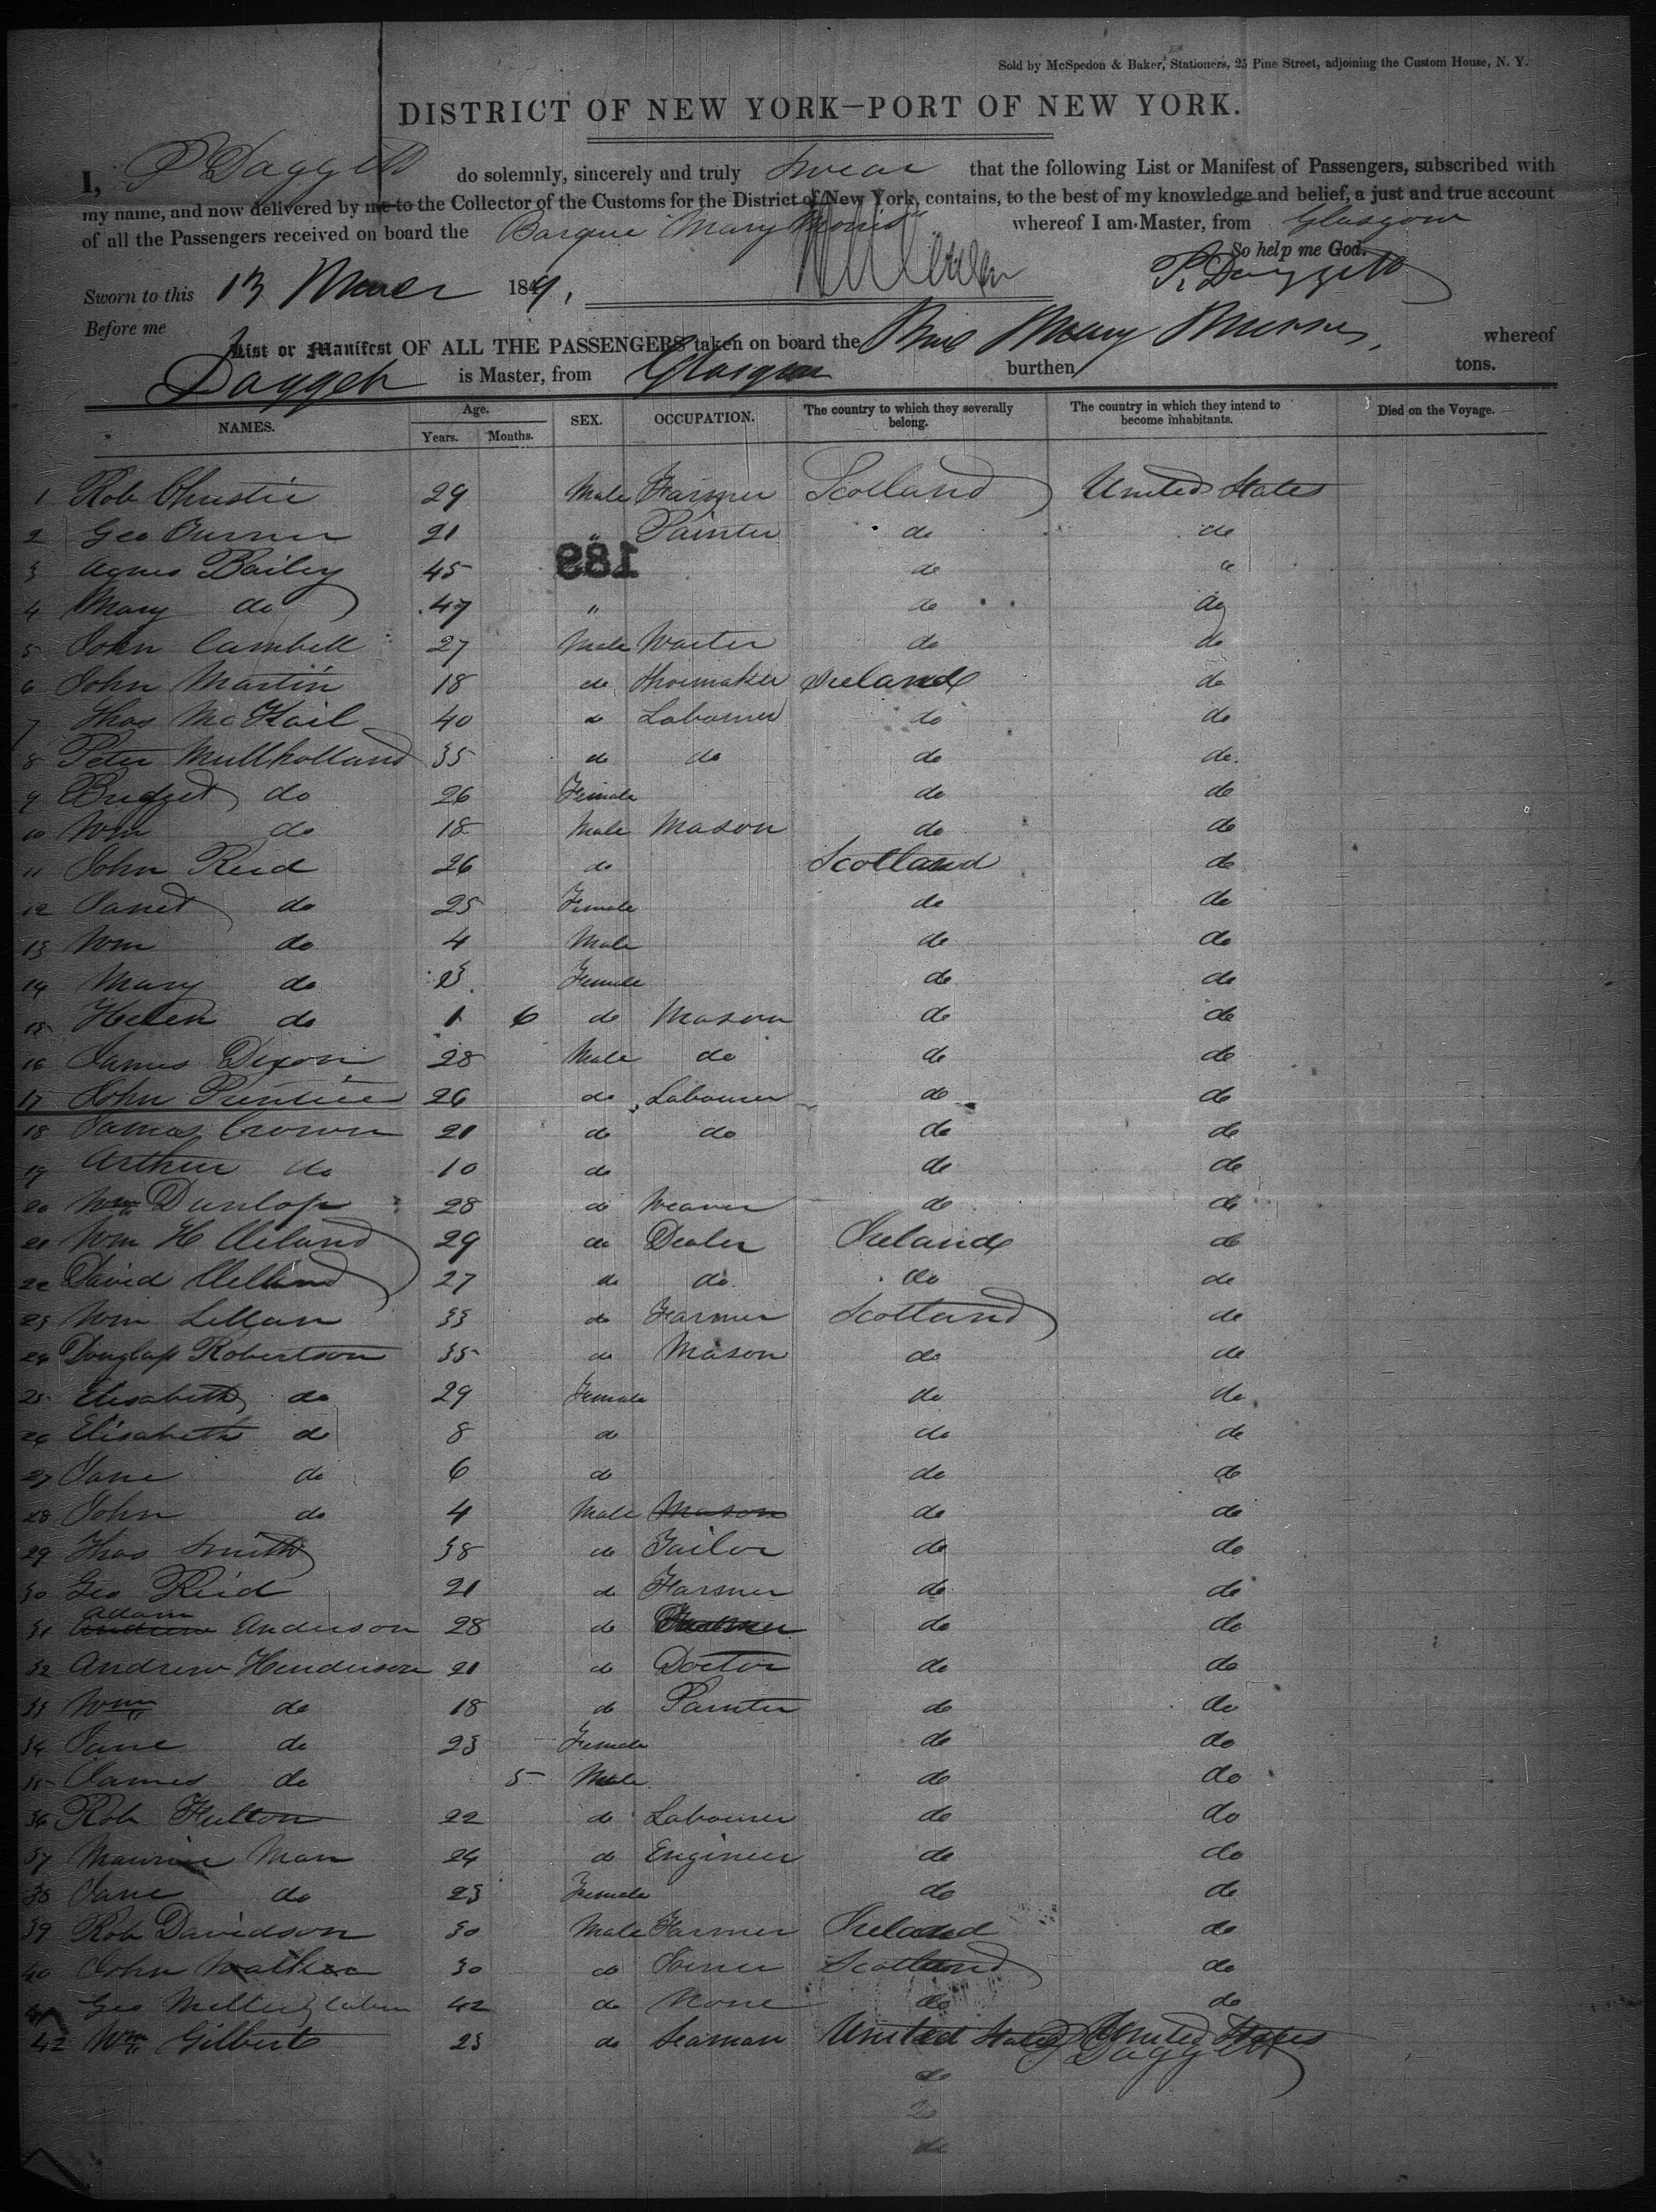 Sold by McSpedon & Baker, Stationers, 25 Pine Street, adjoining the Custom House, N. Y.
DISTRICT OF NEW YORK—PORT OF NEW YORK.
I, P Daggett do solemnly, sincerely and truly swear that the following List or Manifest of Passengers, subscribed with
my name, and now delivered by me to the Collector of the Customs for the District of New York, contains, to the best of my knowledge and belief, a just and true account
of all the Passengers received on board the Barque Mary Morris whereof I am Master, from Glasgow
So help me God.
Sworn to this 13 1849, P. Daggett
Before me
List or Manifest OF ALL THE PASSENGERS taken on board the Mary Morris, whereof
Daggett is Master, from Glasgow burthen tons.
NAMES. Age. Years. Months. SEX. OCCUPATION. The country to which they severally belong. The country in which they intend to become inhabitants. Died on the Voyage.
1 Rob Christie 29 Male Farmer Scotland United States
2 Geo Turner 21 " Painter do do
189
3 Agnes Bailey 45 do "
4 Mary do 47 " do do
5 John Cambell 27 Male Waiter do do
6 John Martin 18 do Shoemaker Ireland do
7 Thos McKail 40 do Labourer do do
8 Peter Mullholland 35 do do do do
9 Bridget do 26 Female do do
10 Wm do 18 Male Mason do do
11 John Reid 26 do Scotland do
12 Janet do 25 Female do do
13 Wm do 4 Male do do
14 Mary do Female do do
15 Helen do 1 6 do Mason do do
16 James Dixon 28 Male do do do
17 John Prentice 26 do Labourer do do
18 James Crown 21 do do do do
19 Arthur do 10 do do do
20 Wm Dunlop 28 do Weaver do do
21 Wm H Cleland 29 do Dealer Ireland do
22 David Clelland 27 do do do do
23 Wm 33 do Farmer Scotland do
24 Douglass Robertson 35 do Mason do do
25 Elisabeth do 29 Female do do
26 Elisabeth do 8 do do do
27 Jane do 6 do do do
28 John do 4 Male Mason do do
29 Thos Smith 38 do Tailor do do
30 Geo Reid 21 do Farmer do do
Adam
31 Andrew Anderson 28 do Farmer do do
32 Andrew Henderson 21 do Doctor do do
33 Wm do 18 do Painter do do
34 Jane do 23 Female do do
35 James do 5 Male do do
36 Rob Fulton 22 do Labourer do do
37 Maurice Man 24 do Engineer do do
38 Jane do 23 Female do do
39 Rob Davidson 30 Male Farmer Ireland do
40 John Walker 30 do Joiner Scotland do
41 Geo Miller cabin 42 do None do do
42 Wm Gilbert 23 do Seaman United States United States
Daggett
do
do
do